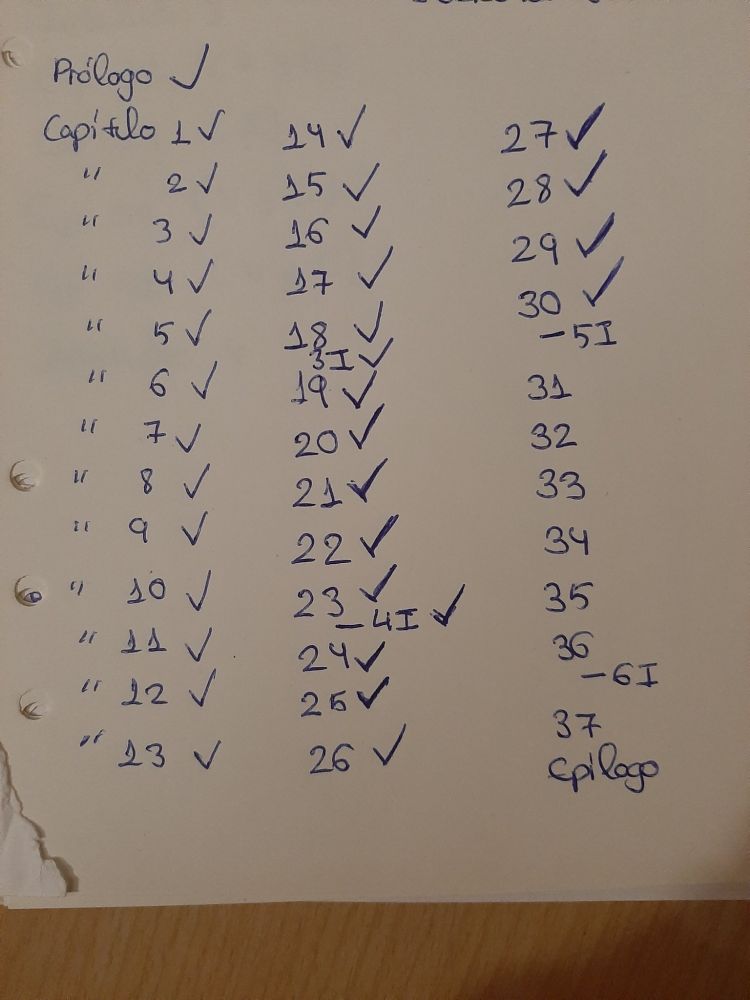 Prólogo ✓
Capítulo 1 ✓
" 2 ✓
" 3 ✓
" 4 ✓
" 5 ✓
" 6 ✓
" 7 ✓
" 8 ✓
" 9 ✓
" 10 ✓
" 11 ✓
" 12 ✓
" 13 ✓
14 ✓
15 ✓
16 ✓
17 ✓
18 ✓
3I ✓
19 ✓
20 ✓
21 ✓
22 ✓
23 ✓
-4I ✓
24 ✓
25 ✓
26 ✓
27 ✓
28 ✓
29 ✓
30 ✓
-5I
31
32
33
34
35
36
-6I
37
Epílogo